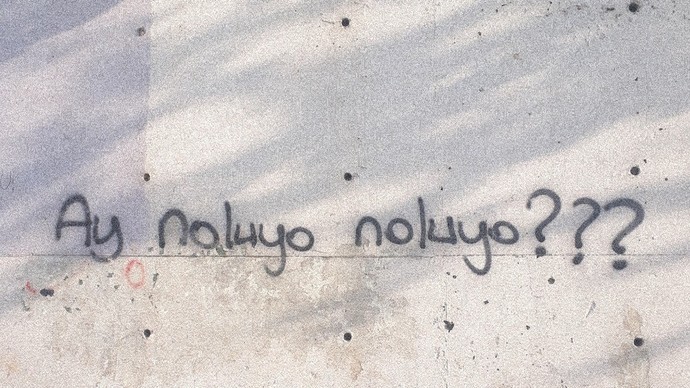 Ay noluyo noluyo???